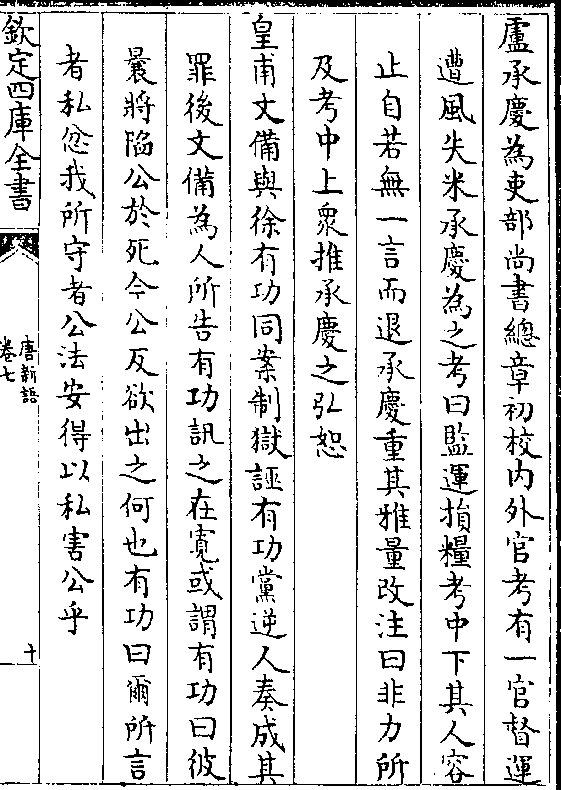 盧承慶為吏部尚書總章初校内外官考有一官督運
遭風失米承慶為之考曰監運損糧考中下其人容
止自若無一言而退承慶重其雅量改注曰非力所
及考中上衆推承慶之弘恕
皇甫文備與徐有功同案制獄誣有功黨逆人奏成其
罪後文備為人所告有功訊之在寛或謂有功曰彼
曩將陷公於死今公反欲出之何也有功曰爾所言
者私忿我所守者公法安得以私害公乎
欽定四庫全書
唐新語
卷七
十